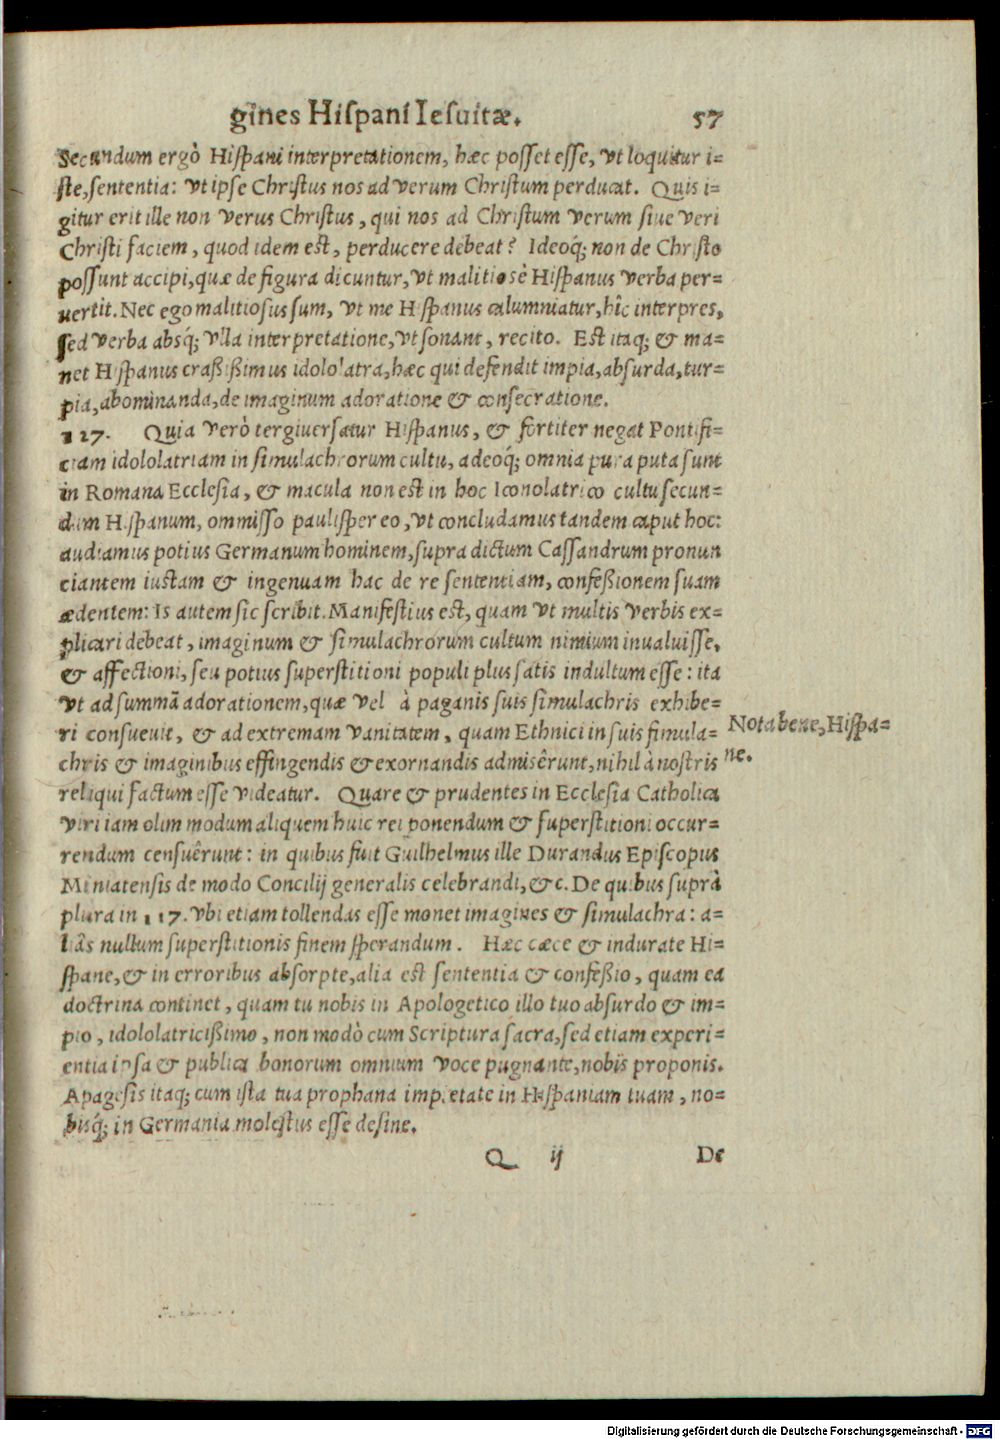 gines Hiſpani Ieſuitæ. 57
Secundum ergò Hiſpani interpretationem, hæc poſſet eſſe, vt loquitur i-
ſte, ſententia: vt ipſe Chriſtus nos ad verum Chriſtum perducat. Quis i-
gitur erit ille non verus Chriſtus, qui nos ad Chriſtum verum ſiue veri
Chriſti faciem, quod idem eſt, perducere debeat? Ideoq́; non de Chriſto
poſſunt accipi, quæ de figura dicuntur, vt malitiosè Hiſpanus verba per-
uertit. Nec ego malitioſus ſum, vt me Hiſpanus calumniatur, hîc interpres,
ſed verba absq́; vlla interpretatione, vt ſonant, recito. Eſt itaq́; & ma-
net Hiſpanus craßißimus idololatra, hæc qui defendit impia, abſurda, tur-
pia, abominanda, de imaginum adoratione & conſecratione.
127. Quia verò tergiuerſatur Hiſpanus, & fortiter negat Pontifi-
ciam idololatriam in ſimulachrorum cultu, adeoq́; omnia pura puta ſunt
in Romana Eccleſia, & macula non eſt in hoc Iconolatrico cultu ſecun-
dum Hiſpanum, ommiſſo pauliſper eo, vt concludamus tandem caput hoc:
audiamus potius Germanum hominem, ſupra dictum Caſſandrum pronun
ciantem iuſtam & ingenuam hac de re ſententiam, confeßionem ſuam
ædentem: Is autem ſic ſcribit. Manifeſtius eſt, quam vt multis verbis ex-
plicari debeat, imaginum & ſimulachrorum cultum nimium inualuiſſe,
& affectioni, ſeu potius ſuperſtitioni populi plus ſatis indultum eſſe: ita
vt ad ſummā adorationem, quæ vel à paganis ſuis ſimulachris exhibe-
ri conſueuit, & ad extremam vanitatem, quam Ethnici in ſuis ſimula-
chris & imaginibus effingendis & exornandis admisêrunt, nihil à noſtris
reliqui factum eſſe videatur. Quare & prudentes in Eccleſia Catholica
viri iam olim modum aliquem huic rei ponendum & ſuperſtitioni occur-
rendum cenſuêrunt: in quibus fuit Guilhelmus ille Durandus Epiſcopus
Miniatenſis de modo Concilij generalis celebrandi, &c. De quibus ſuprà
plura in 117. vbi etiam tollendas eſſe monet imagines & ſimulachra: a-
liâs nullum ſuperſtitionis finem ſperandum. Hæc cæce & indurate Hi-
ſpane, & in erroribus abſorpte, alia eſt ſententia & confeßio, quam ea
doctrina continet, quam tu nobis in Apologetico illo tuo abſurdo & im-
pio, idololatricißimo, non modò cum Scriptura ſacra, ſed etiam experi-
entia ipſa & publica bonorum omnium voce pugnante, nobis proponis.
Apageſis itaq́; cum iſta tua prophana impietate in Hiſpaniam tuam, no-
bisq́; in Germania moleſtus eſſe deſine.
Nota bene, Hiſpa-
ne.
Q ij De
Digitalisierung gefördert durch die Deutsche Forschungsgemeinschaft - DFG